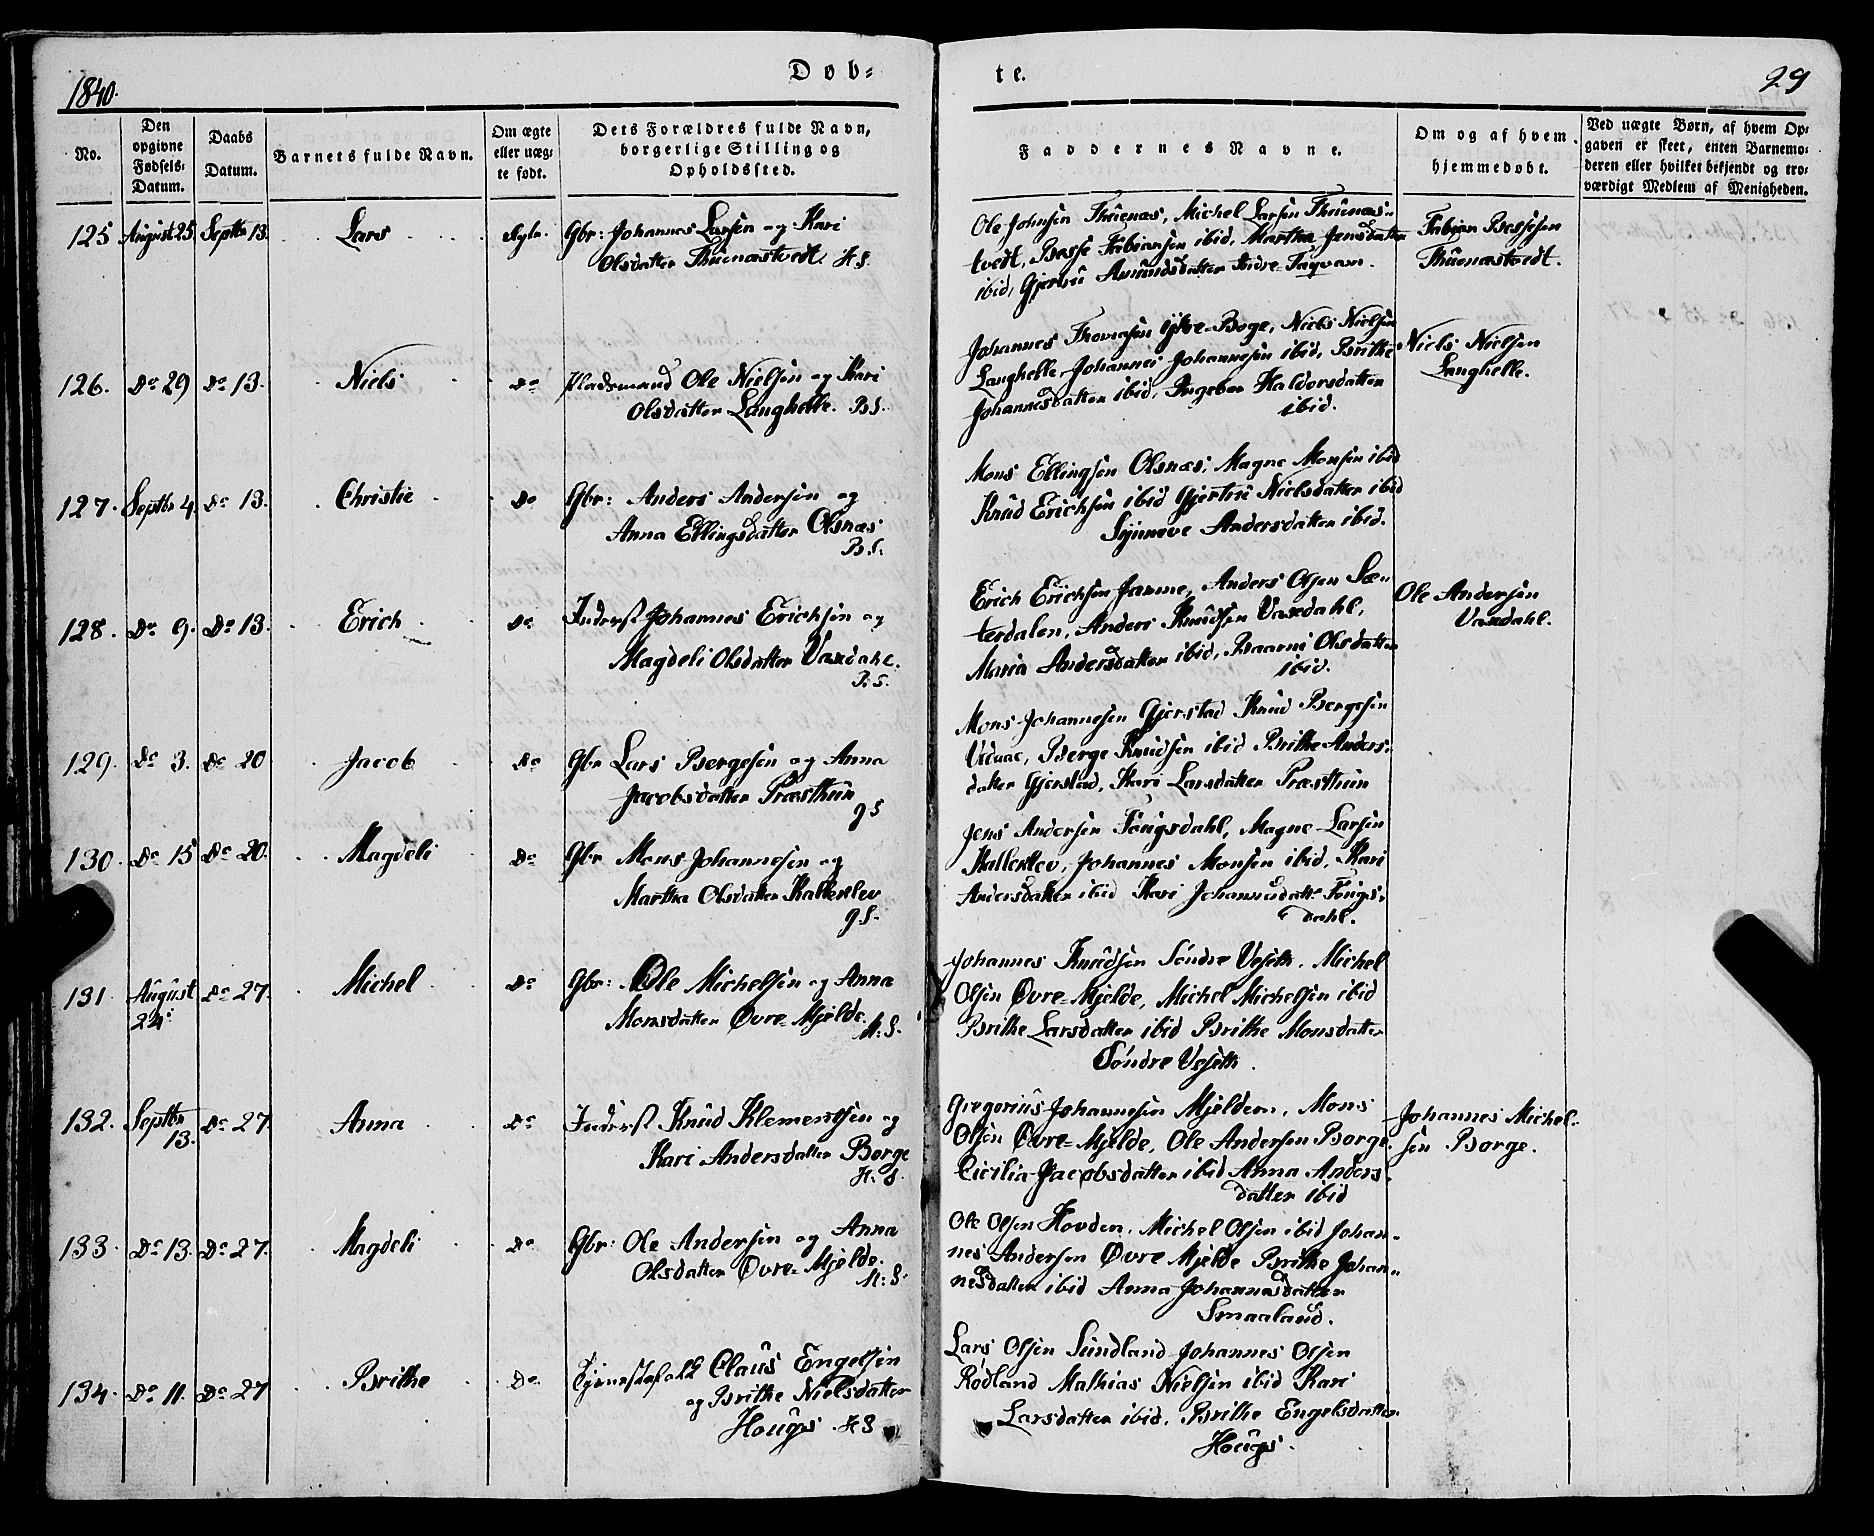 1840.
Døb-
te.
29
No.
Den opgivne Fødsels-Datum.
Daabs Datum.
Barnets fulde Navn.
Om ægte eller uæg-te født.
Dets Forældres fulde Navn, borgerlige Stilling og Opholdssted.
Faddernes Navne.
Om og af hvem hjemmedøbt.
Ved uægte Børn, af hvem Op-gaven er skeet, enten Barnemo-deren eller hvilket bekjendt og tro-værdigt Medlem af Menigheden.
125 August 25 Septbr 13. Lars Ægte. Gbr: Johannes Larsen og Kari
Olsdatter Thuenæstvedt. H.S.
Ole Johnsen Thuenæs, Michel Larsen Thuenæs-
tvedt, Basse Fabiansen ibid, Martha Jensdatter
ibid, Gjertrü Amündsdatter Indre-
Fabian Bassesen
Thuenæstvedt.
126. Do 29 Do 13. Niels Do Pladsmand Ole Nielsen og Kari
Olsdatter Langhelle. B.S.
Johannes Thomesen Boge, Niels Nielsen
Langhelle, Johannes Johannesen ibid, Brithe
Johannesdatter ibid, Ingebor Haldorsdatter
ibid.
Niels Nielsen
Langhelle.
127. Septbr 4. Do 13. Christie Do Gbr: Anders Andersen og
Anna Ellingsdatter Olsnæs
B.S.
Mons Ellingsen Olsnæs, Magne Monsen ibid
Knüd Erichsen ibid Gjertrü Nielsdatter ibid
Syneve Andersdatter ibid.
128. Do 9. Do 13. Erich Do Inderst Johannes Erichsen og
Magdeli Olsdatter Vaxdahl.
B.S.
Erich Erichsen Jamne, Anders Olsen Sæ-
terdalen, Anders Knüdsen Vaxdahl,
Maria Andersdatter ibid, Olsdatter
ibid.
Ole Andersen
Vaxdahl.
129. Do 3. Do 20 Jacob Do Gbr Lars Bergesen og Anna
Jacobsdatter Præsthün
G S
Mons Johannesen Gjerstad Knüd Bergesen
Berge Knüdsen ibid Brithe Anders-
datter Gjerstad, Kari Larsdatter Præsthün
130. Do 15 Do 20. Magdeli Do Gbr Mons Johannesen og
Martha Olsdatter Kalleklev
G.S.
Jens Andersen Fougsdahl, Magne Larsen
Kalleklev, Johannes Monsen ibid, Kari
Andersdatter ibid Kari Johannesdatt: Fougs-
dahl.
131. August Do 27. Michel Do Gbr: Ole Michelsen og Anna
24.
Monsdatter Øvre-Mjelde.
M.S.
Johannes Knüdsen Søndre Veseth, Michel
Olsen Øvre-Mjelde, Michel Michelsen ibid
Brithe Larsdatter ibid Brithe Monsdatter
Søndre Veseth.
132. Septbr 13. Do 27. Anna Do Inderst Knüd Klementsen og
Kari Andersdatter Borge
H.S.
Gregorius Johannesen Mjeldem, Mons
Olsen Øvre-Mjelde, Ole Andersen Borge
Cicilia Jacobsdatter ibid Anna Anders-
datter ibid
Johannes Michel-
sen Borge.
133. Do 13. Do 27. Magdeli Do Gbr: Ole Andersen og Anna
Olsdatter Øvre-Mjelde.
M.S.
Ole Olsen Hovden, Michel Olsen ibid Johan-
nes Andersen Øvre Mjelde Brithe Johan-
nesdatter ibid Anna Johannesdatter
Smaaland.
134. Do 11. Do 27 Brithe Do Tjenestefolk Claus Engelsen
og Brithe Nielsdatter
Hougs. H S
Lars Olsen Sündland Johannes Olsen
Rødland Mathias Nielsen ibid Kari
Larsdatter ibid, Brithe Engelsdatter
Hougs.